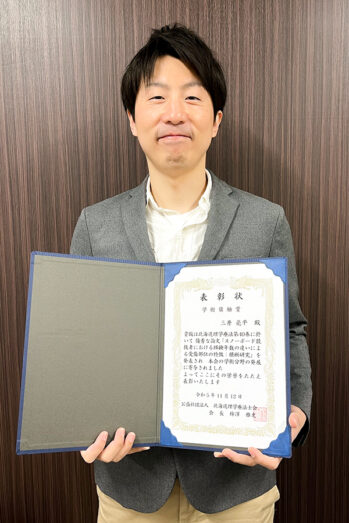 表彰状
学術奨励賞
三井 亮平 殿
貴殿は北海道理学療法第40巻に於
いて 優秀な論文「スノーボード競
技者における経験年数の違いによ
る受傷部位の特徴：横断研究」を
発表され 本会の学術分野の発展
に寄与されました
よってここにその学術をたたえ
表彰いたします
令和5年11月12日
公益社団法人 北海道理学療法士会
会 長 雅史